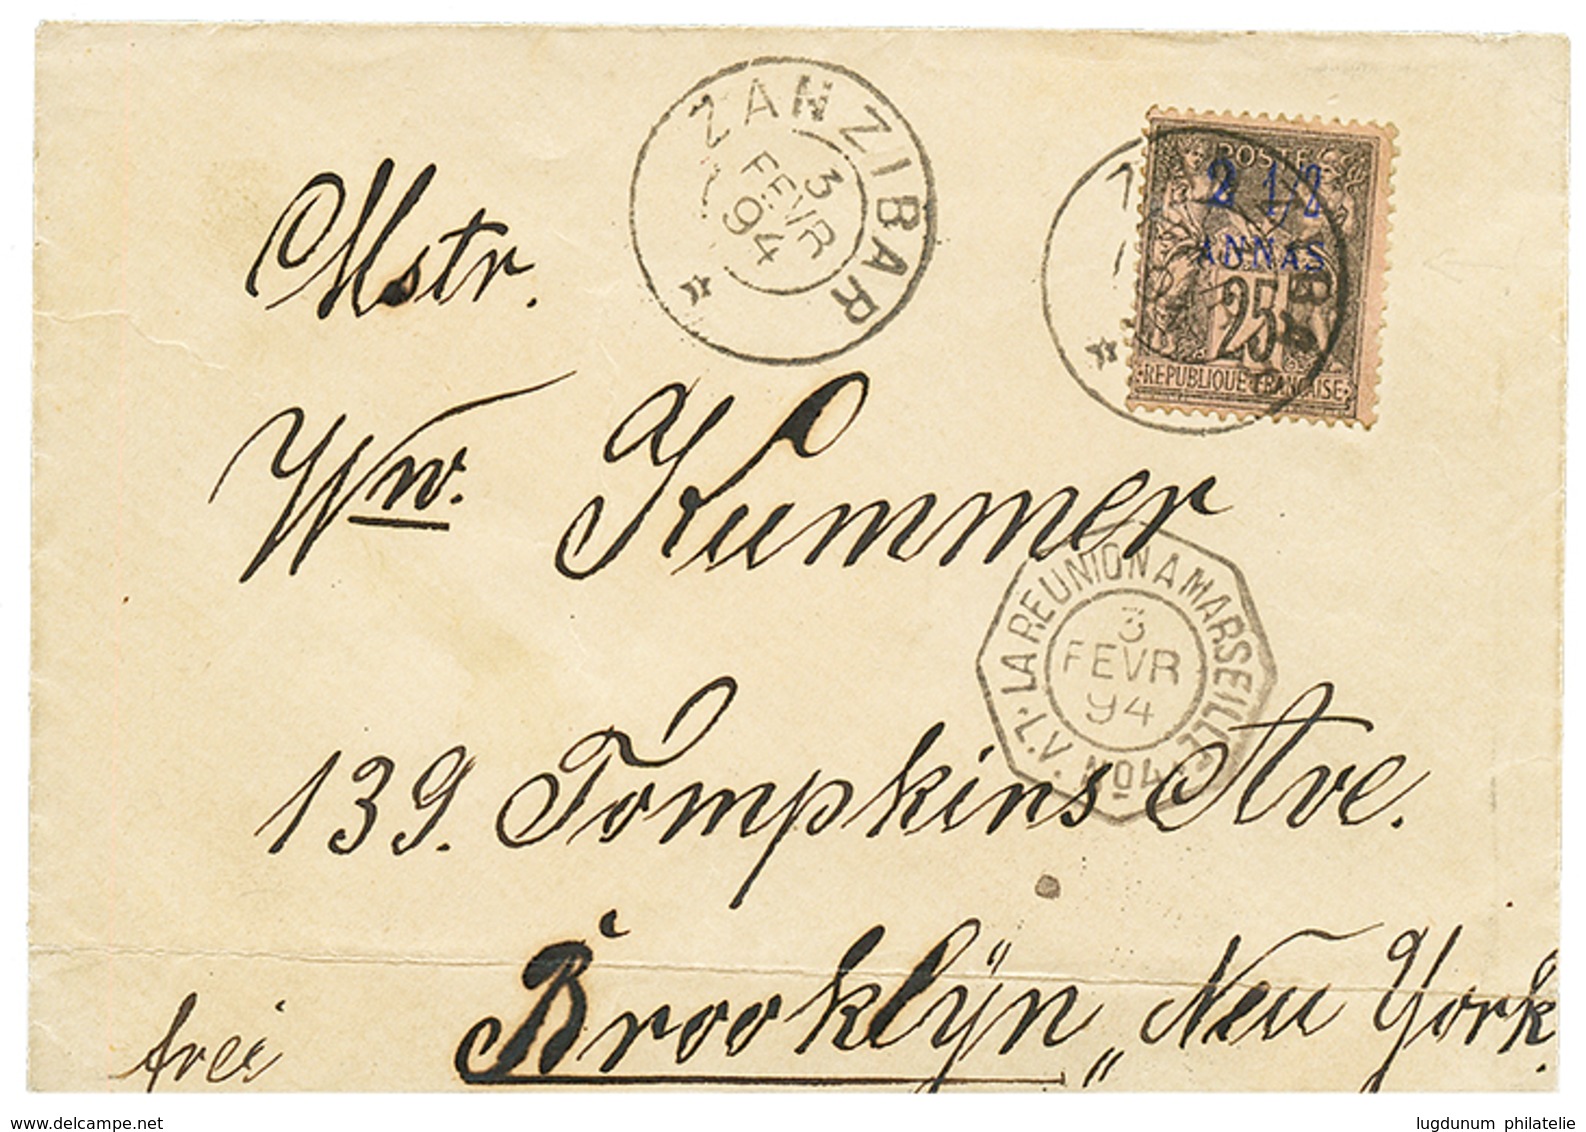 ZANZIBAR
3
FEVR
94
POSTE
2 1/2
ANNAS
25
REPUBLIQUE FRANCAISE
Mstr.
Ww. Kummer
LA REUNION A MARSEILLE
3
FEVR
94
L.V. No 4
139. Tompkins Ave.
Brooklÿn „ Neu York.
frei
lugdunum philatelie